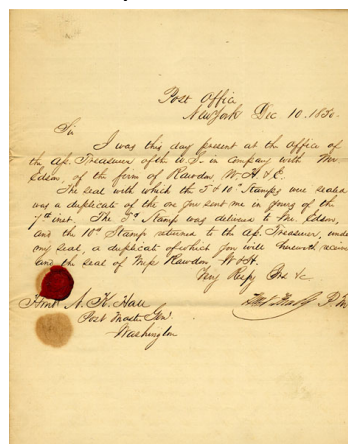 Post Office
New York Dec. 10. 1850.
Sir
I was this day present at the Office of
the Ap. Treasurer of the U.S. in Company with Mr
Edson, of the firm of Rawdon, W. H & C.
The seal with which the 5 & 10c Stamps were sealed
was a duplicate of the one you sent me in yours of the
7th inst. The 5c Stamp was delivered to Mr. Edson,
and the 10c Stamp returned to the Ap. Treasurer, under
my seal, a duplicate of which you will herewith receive
and the seal of Messrs Rawdon W & H.
Very Respy &c
Honl N. K. Hall
Post Master Gen
Washington
P.M